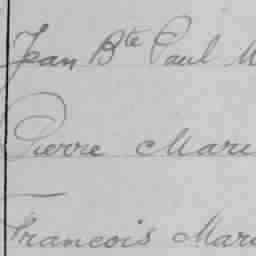 Jean Bte Paul M
Pierre Mari
Francois Mari